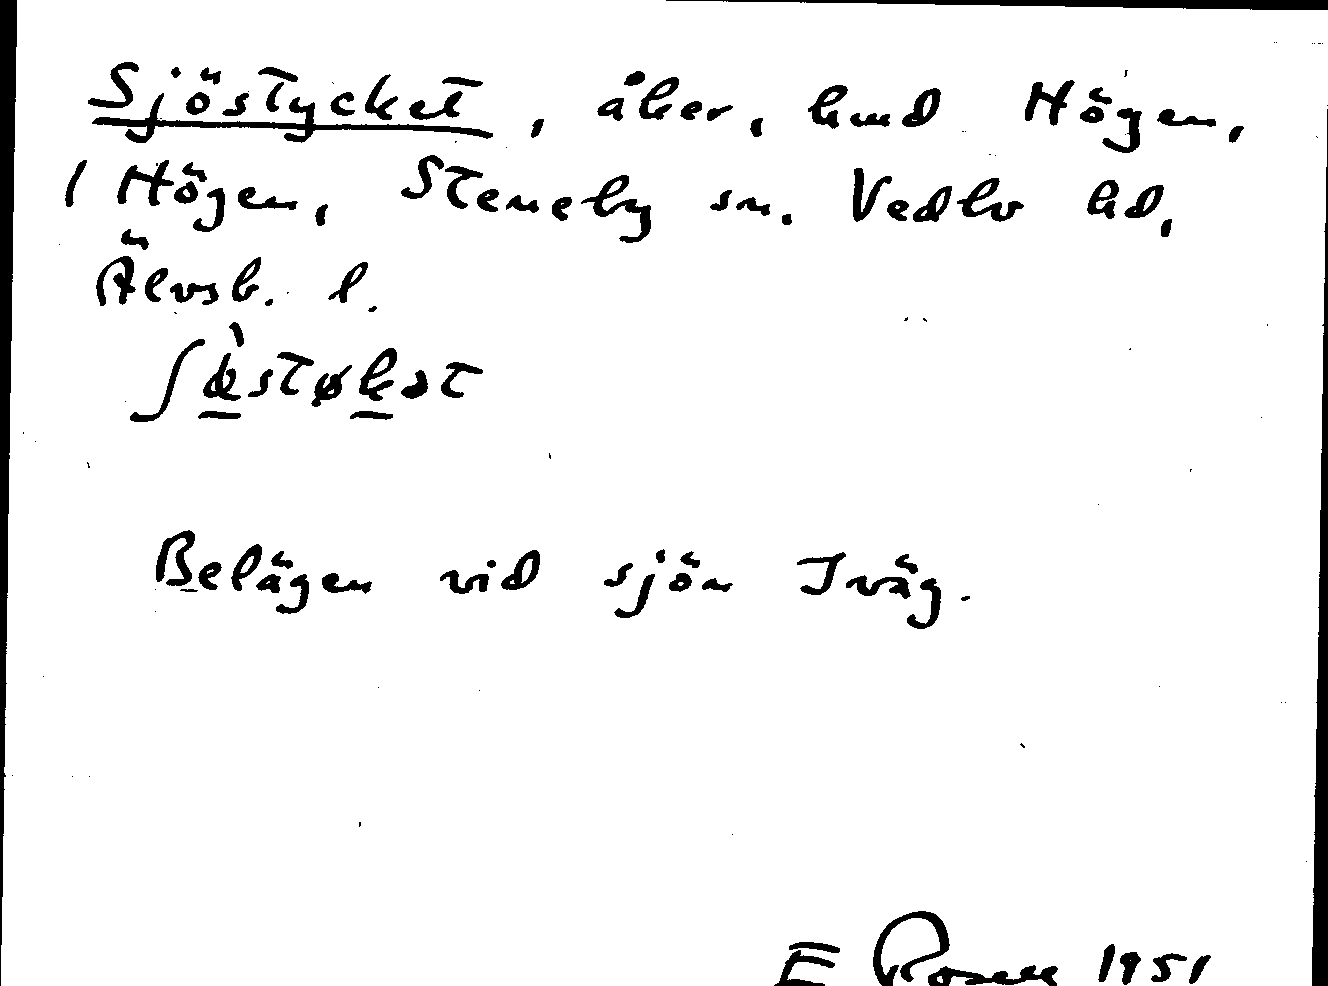 Sjöstycket, åker, hmd Högen,
1 Högen, Steneby sn. Vedbo hd,
Älvsb. l.
Belägen vid sjön Iväg.
E Rosell 1951